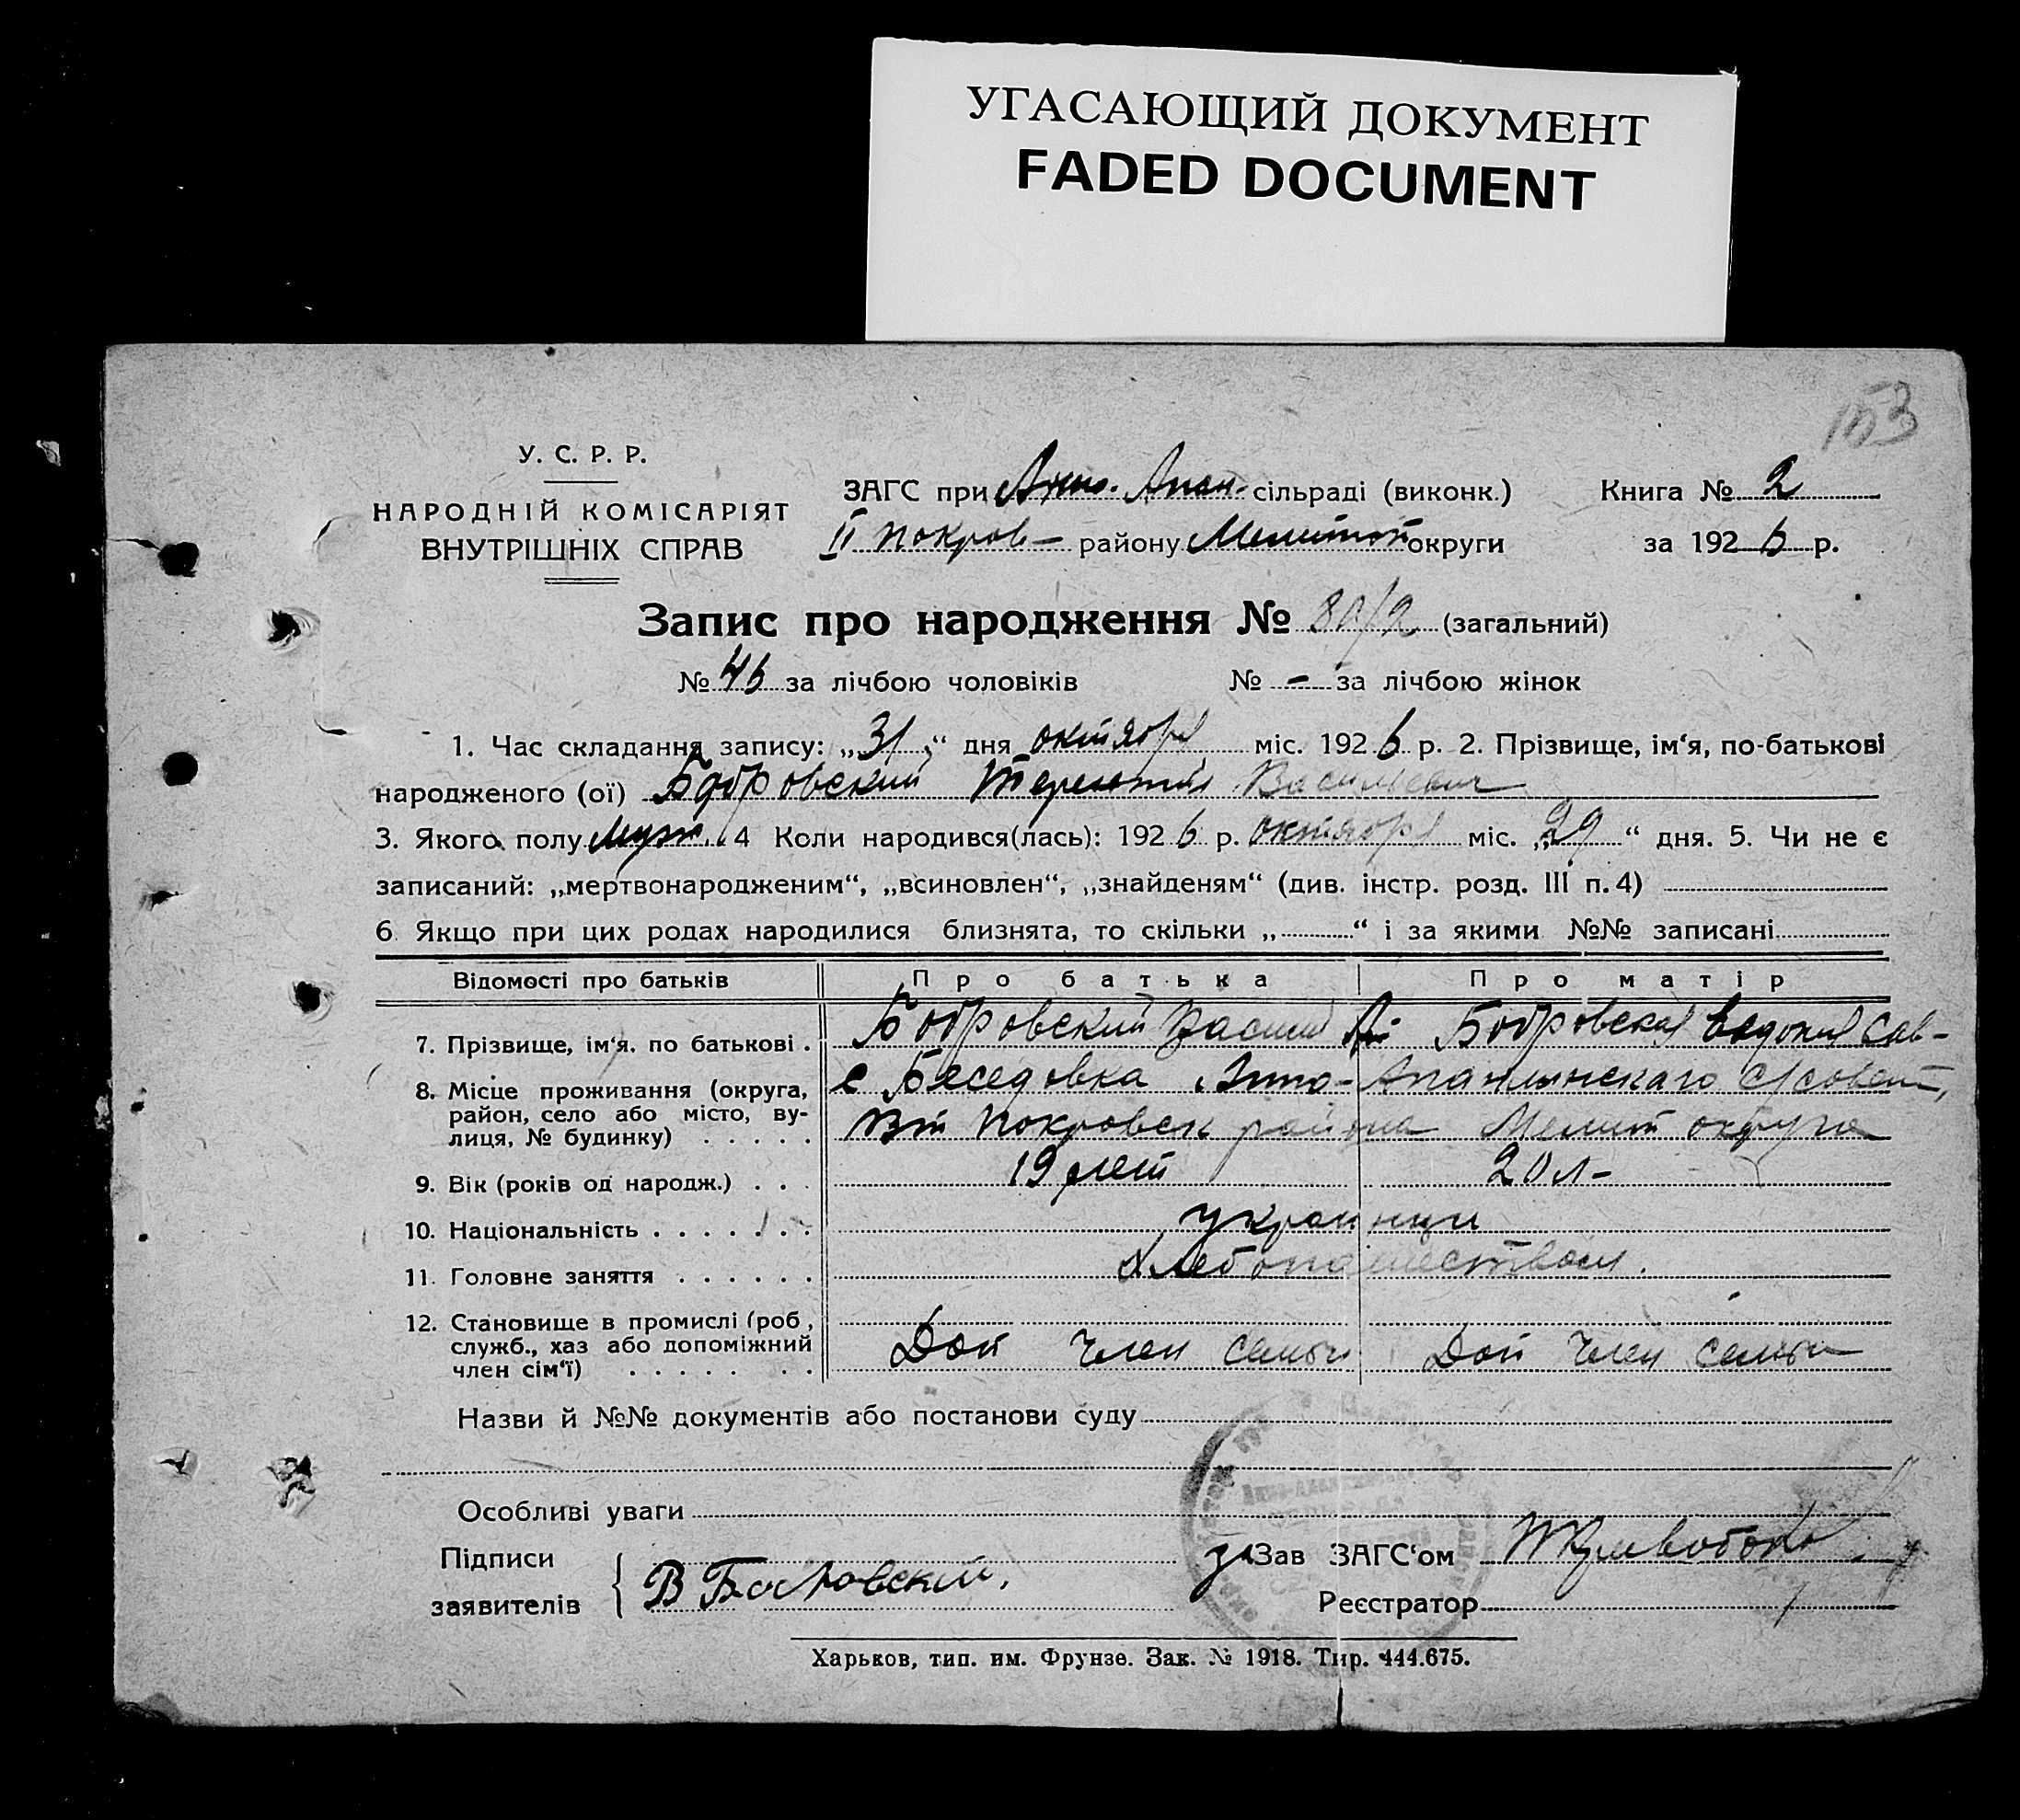 УГАСАЮЩИЙ ДОКУМЕНТ
FADED DOCUMENT
153
У. С. Р. Р.
НАРОДНІЙ КОМІСАРІЯТ
ВНУТРІШНІХ СПРАВ
ЗАГС при Анно. Апан. сільраді (виконк.)
II покров– району Мелитоп округи
Книга № 2
за 1926 р.
Запис про народження № 80/2 (загальний)
№ 46 за лічбою чоловіків № – за лічбою жінок
1. Час складання запису: „31" дня октября міс. 1926 р. 2. Прізвище, ім'я, по-батькові
народженого (ої) Бобровский Терентий Васильевич
3. Якого полу муж. 4 Коли народився(лась): 1926 р. октября міс. „29" дня. 5. Чи не є
записаний: „мертвонародженим", „всиновлен", „знайденям" (див. інстр. розд. III п. 4)
6. Якщо при цих родах народилися близнята, то скільки „ " і за якими №№ записані
Відомості про батьків Про батька Про матір
7. Прізвище, ім'я, по батькові . Бобровский Васили Бобровская Евдокия Сав-
8. Місце проживання (округа, район, село або місто, ву- лиця, № будинку) . . . . . с Беседовка Анно-Апанлынскаго с/совета,
Вт Покровск района Мелит округа
9. Вік (років од народж.) . . . 19 лет 20 л-
10. Національність . . . . . . . украинци
11. Головне заняття . . . . . . Хлебопашеством.
12. Становище в промислі (роб, служб., хаз або допоміжний член сім'ї) . . . . . . . Доп член семьи Доп член семьи
Назви й №№ документів або постанови суду
Особливі уваги
Підписи
заявителів { В Бобровский.
за Зав ЗАГС'ом
Реєстратор
Харьков, тип. им. Фрунзе. Зак. № 1918. Тир. 444.675.